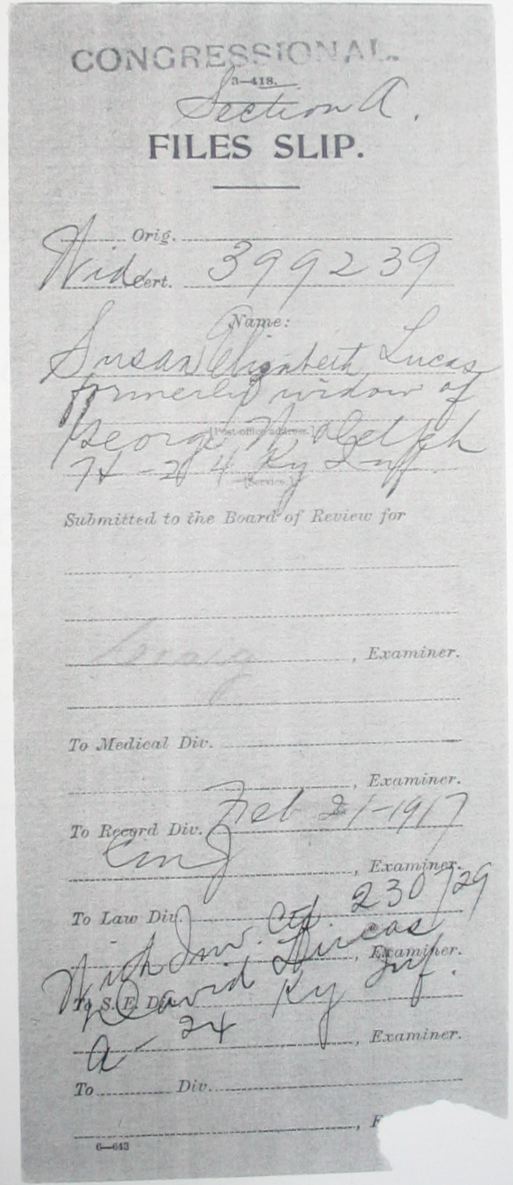 CONGRESSIONAL.
3-418.
Section A.
FILES SLIP.
Orig.
Wid Cert. 399239
Name:
Susan Elizabeth Lucas
formerly widow of
[Post-office address.]
George N.
H - 24 Ky Inf.
[Service.]
Submitted to the Board of Review for
, Examiner.
To Medical Div.
, Examiner.
To Record Div. Feb 21-1917
, Examiner.
To Law Div. 230729
With Inv. Ctf
, Examiner.
David Lucas
To S. E. Div.
A - 24 Ky Inf.
, Examiner.
To Div.
6-643